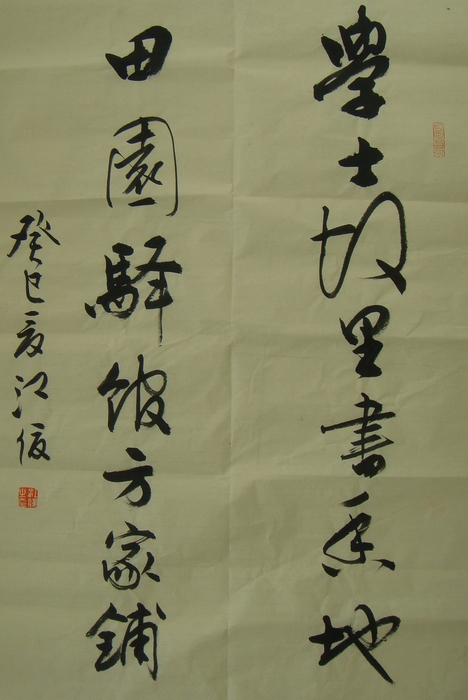 學士故里書香地
田園驛館方家鋪
癸巳夏江俊